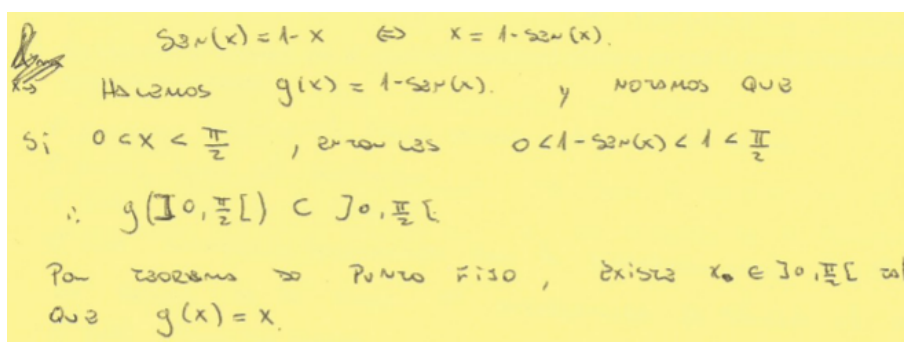 Sen(x) = 1 - x ⇔ x = 1 - sen(x).
x→
Hacemos g(x) = 1 - sen(x). y notamos que
Si 0 < x < π/2 , entonces 0 < 1 - sen(x) < 1 < π/2
∴ g(]0, π/2[) ⊂ ]0, π/2[.
Por teorema de Punto Fijo , existe x₀ ∈ ]0, π/2[ tal
que g(x) = x.